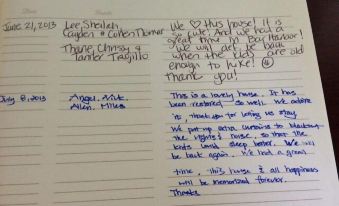 June 21, 2013
Lee, Sheilah,
Cayden & Colten Thomas
Thane, Chrissy &
Tanner Trujillo
We ♡ this house! It is
so cute! And we had a
great time in Bay Harbour!
We will be back
when the kids are old
enough to hike! ☺
Thank you!
July 8, 2013
Angel, Nick
Allen, Miles
This is a lovely house. It has
been restored so well. We adore
it, thank you for letting us stay
We put up extra curtains to
the house, so that the
kids could sleep better. We will
be back again. We had a great
time. This house & all happiness
will be memorized forever.
Thanks